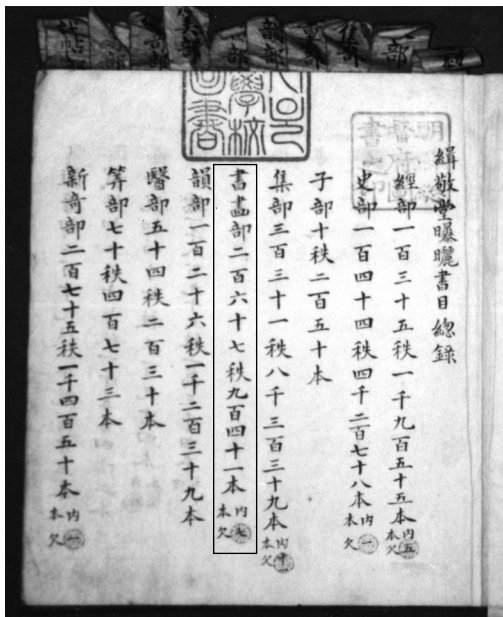 緝敬堂曝曬書目 總錄
經部一百三十五秩一千九百五十五本 內五本欠
史部一百四十四秩四千二百七十八本 內一本欠
子部十秩二百五十本
集部三百三十一秩八千三百三十九本 內十本欠
書畫部二百六十七秩九百四十一本 內七本欠
韻部一百二十六秩一千二百三十九本
醫部五十四秩二百三十本
筭部七十秩四百七十三本
新奇部二百七十五秩一千四百五十本 內一本欠